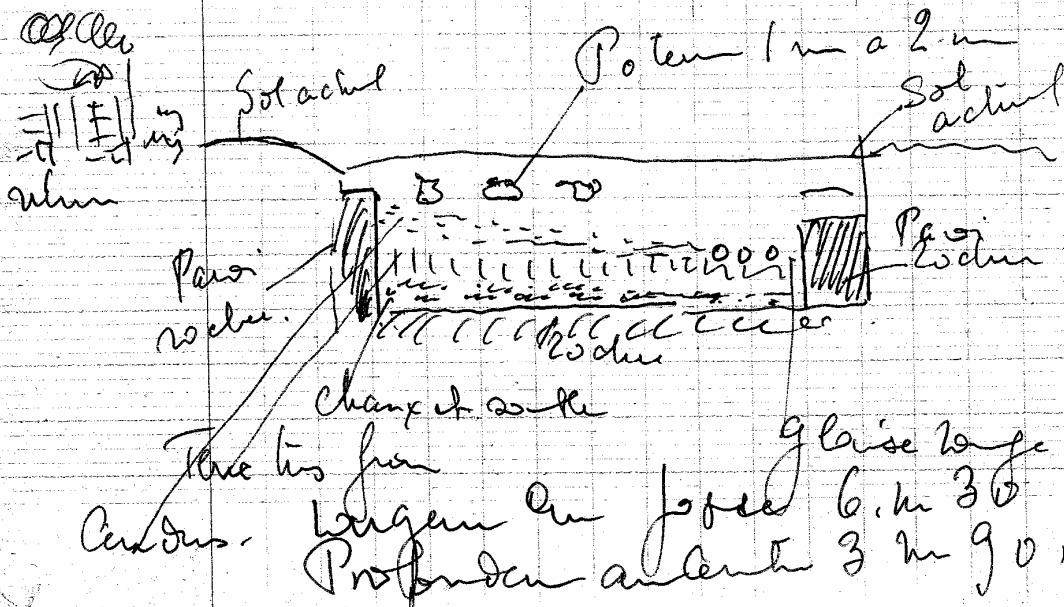 Sol actuel
Poterie 1 m a 2 m
Sol
actuel
Paroi
rocher.
Paroi
rocher
Rocher
Chaux et
Terre
glaise rouge
Cendres.
Largeur du fossé 6. m 30
Profondeur au centre 3 m 90